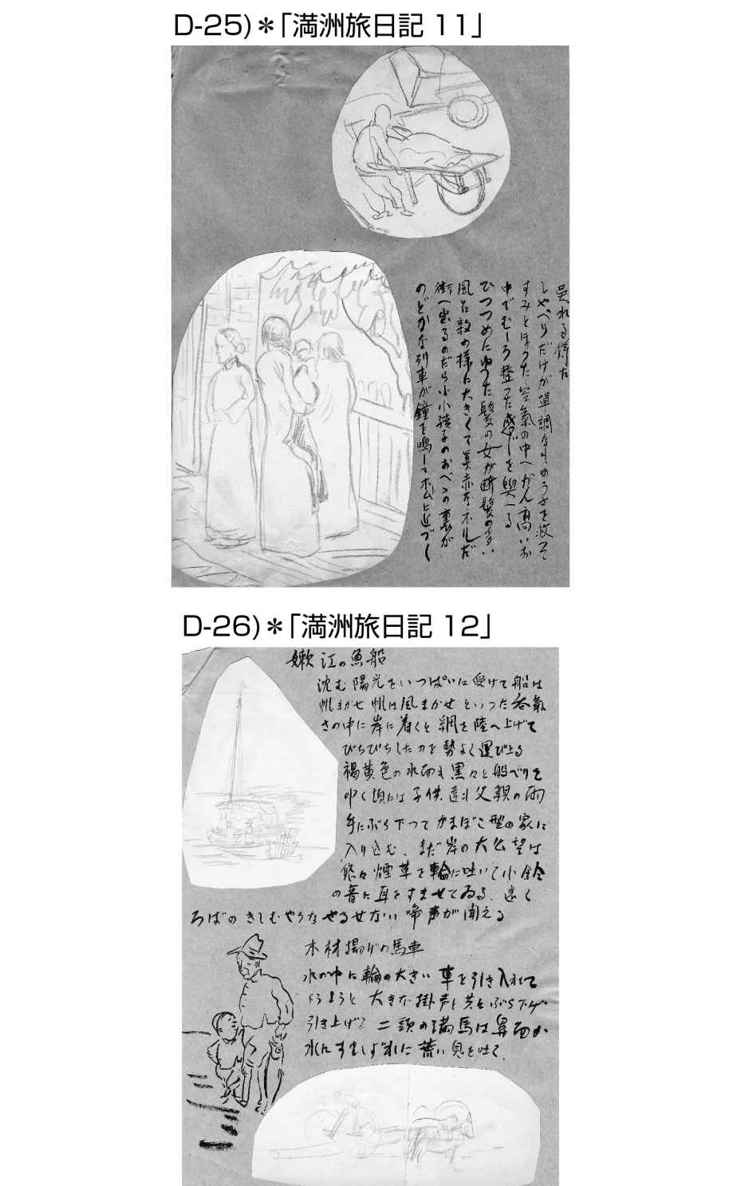 D-25)＊「満洲旅日記 11」
呉れる待た
しゃべりだけが単調な
すみとほつた空氣の中へかん高い
中でむしろ整つた感じを與へる
ひつつめにゆうた髪の女が断髪の多い
風た数の様に大きくて真赤なホールだ
街へ出るのだら小孩子のおべべの裏が
のどかな列車が鐘を鳴してホームに近づく
D-26)＊「満洲旅日記 12」
嫩江の魚船
沈む陽光をいつぱいに受けて船は
帆まかせ帆は風まかせといつた呑氣
さの中に岸に着くと網を陸へ上げて
ぴちぴちしたのを勢よく運び上る
褐黄色の水面も黒々と船べりを
叩く頃には子供達は父親の両
手にぶら下つてかまぼこ型の家に
入り込む、まだ岸の大公望は
悠々煙草を輪に吐いて小鈴
の音に耳をすませてゐる、遠く
ろばのきしむやうなやるせない啼声が聞える
木材揚げの馬車
水の中に輪の大きい車を引き入れて
大きな掛声と共にぶら下げ
引き上げる 二頭の満馬は鼻面が
水にすれすれに荒い息を吐く、